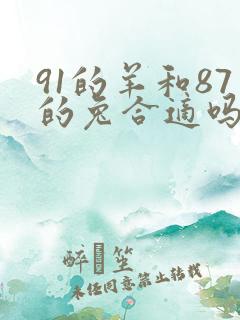 91的羊和87
的兔合适吗
醉 笙
未经同意禁止转载